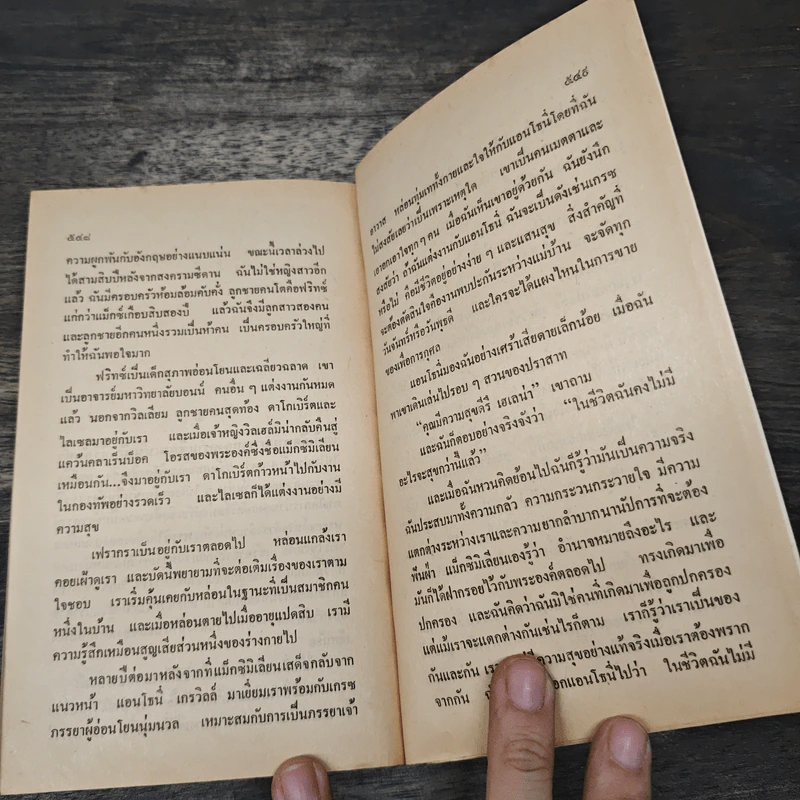 ๕๔๘
ความผูกพันกับอังกฤษอย่างแนบแน่น ขณะนี้เวลาล่วงไป
ได้สามสิบปีหลังจากสงครามซีดาน ฉันไม่ใช่หญิงสาวอีก
แล้ว ฉันมีครอบครัวห้อมล้อมคับคั่ง ลูกชายคนโตคือฟริทซ์
แก่กว่าแม็กซ์เกือบสิบสองปี แล้วฉันจึงมีลูกสาวสองคน
และลูกชายอีกคนหนึ่งรวมเป็นห้าคน เป็นครอบครัวใหญ่ที่
ทำให้ฉันพอใจมาก
ฟริทซ์เป็นเด็กสุภาพอ่อนโยนและเฉลียวฉลาด เขา
เป็นอาจารย์มหาวิทยาลัยบอนน์ คนอื่น ๆ แต่งงานกันหมด
แล้ว นอกจากวิลเลียม ลูกชายคนสุดท้อง ดาโกเบิร์ตและ
ไลเซลมาอยู่กับเรา และเมื่อเจ้าหญิงวิลเฮล์มิน่ากลับคืนสู่
แคว้นคลาเร็นบ็อค โอรสของพระองค์ซึ่งชื่อแม็กซิมิเลียน
เหมือนกัน...จึงมาอยู่กับเรา ดาโกเบิร์ตก้าวหน้าไปกับงาน
ในกองทัพอย่างรวดเร็ว และไลเซลก็ได้แต่งงานอย่างมี
ความสุข
เฟรากราเบ็นอยู่กับเราตลอดไป หล่อนแกล้งเรา
คอยเฝ้าดูเรา และบัดนี้พยายามที่จะต่อเติมเรื่องของเราตาม
ใจชอบ เราเริ่มคุ้นเคยกับหล่อนในฐานะที่เป็นสมาชิกคน
หนึ่งในบ้าน และเมื่อหล่อนตายไปเมื่ออายุแปดสิบ เรามี
ความรู้สึกเหมือนสูญเสียส่วนหนึ่งของร่างกายไป
หลายปีต่อมาหลังจากที่แม็กซิมิเลียนเสด็จกลับจาก
แนวหน้า แอนโธนี่ เกรวิลล์ มาเยี่ยมเราพร้อมกับเกรซ
ภรรยาผู้อ่อนโยนนุ่มนวล เหมาะสมกับการเป็นภรรยาเจ้า
๕๔๙
อาวาส หล่อนทุ่มเททั้งกายและใจให้กับแอนโธนี่โดยที่ฉัน
ไม่สงสัยเลยว่าเป็นเพราะเหตุใด เขาเป็นคนเมตตาและ
เอาอกเอาใจทุก ๆ คน เมื่อฉันเห็นเขาอยู่ด้วยกัน ฉันยังนึก
สงสัยว่า ถ้าฉันแต่งงานกับแอนโธนี่ ฉันจะเป็นดังเช่นเกรซ
หรือไม่ คือมีชีวิตอยู่อย่างง่าย ๆ และแสนสุข สิ่งสำคัญที่
จะต้องตัดสินใจคืองานพบปะกันระหว่างแม่บ้าน จะจัดทุก
วันจันทร์หรือวันพุธดี และใครจะได้แผงไหนในการขาย
ของเพื่อการกุศล
แอนโธนี่มองฉันอย่างเศร้าเสียดายเล็กน้อย เมื่อฉัน
พาเขาเดินเล่นไปรอบ ๆ สวนของปราสาท
“คุณมีความสุขดีรึ เฮเลน่า” เขาถาม
และฉันก็ตอบอย่างจริงจังว่า “ในชีวิตฉันคงไม่มี
อะไรจะสุขกว่านี้แล้ว”
และเมื่อฉันหวนคิดย้อนไปฉันก็รู้ว่ามันเป็นความจริง
ฉันประสบมาทั้งความกลัว ความกระวนกระวายใจ มีความ
แตกต่างระหว่างเราและความยากลำบากนานัปการที่จะต้อง
ฟันฝ่า แม็กซิมิเลียนเองรู้ว่า อำนาจหมายถึงอะไร และ
มันก็ได้ฝากรอยไว้กับพระองค์ตลอดไป ทรงเกิดมาเพื่อ
ปกครอง และฉันคิดว่าฉันมิใช่คนที่เกิดมาเพื่อถูกปกครอง
แต่แม้เราจะแตกต่างกันเช่นไรก็ตาม เราก็รู้ว่าเราเป็นของ
กันและกัน ความสุขอย่างแท้จริงเมื่อเราต้องพราก
จากกัน แอนโธนี่ไปว่า ในชีวิตฉันไม่มี